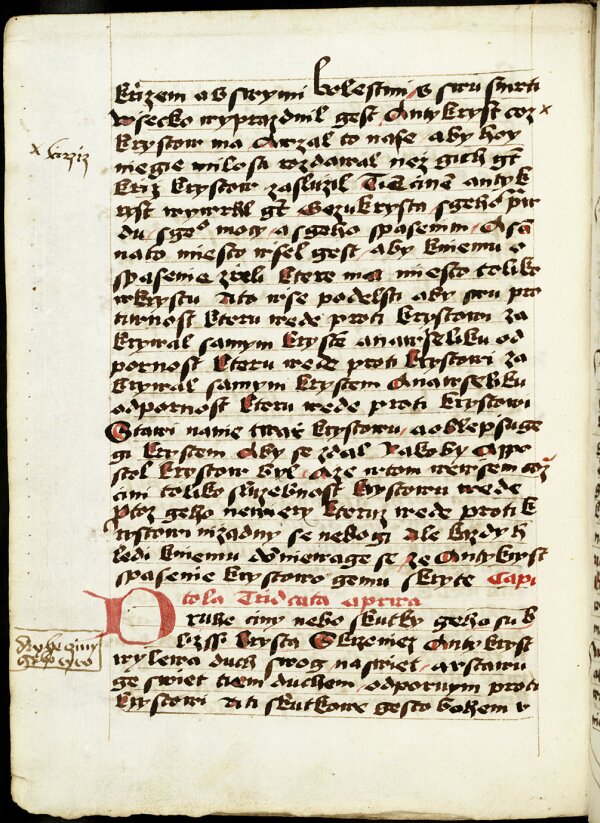 křizem a v swymi bolestmi v swu smrti
wsecko wyprazdnil gest Antykryst coz
krystow ma wzal to nase aby hoy
negie milosti rozdawal nez gich gt
kriz krystow zaslužil
rist wywrátil gt Gezukrysta sgeho
du sgeo moci a sgeho spasenim
na to miesto wsel gest aby kniemu o
spasenie zreli ktere ma miesto toliko
wkrystu A ta wse podelsti aby swu pro
tiwnost kteru wede proti krystowi za
krywal samym krystem a nawseliku od
pornost kteru wede proti krystowi za
krywal samym krystem A nawseliku
odpornost kteru wede proti krystowi
Stawi namie twar krystowu a oblepsuge
gi krystem Aby se zdal yakoby Appo
stol krystow byl A ze wtom wewsem
cim toliko služebnost krystowu wede
ptoz geho newery kteruz wede proti k
ristowi nizadny se nebogi Ale kazdy h
ledi kniemu domniewage se ze Antykryst
spasenie krystowo gemu skyte Capi
tola Tridcata a prwa
Druhe ciny nebo skutky geho su b
lizss krysta Skrzeniez Antykryst
wylewa duch swog naswiet a wstawu
ge swiet tiem duchem odpornym proti
krystowi A ti skutkowe gesto bohem w
druhe ciny
geho